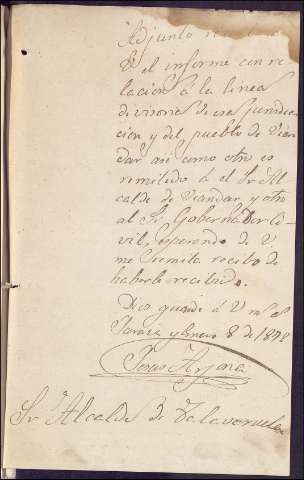 Adjunto
V. el informe con re
lacion á la linea
divisoria de esa jurisdic
cion y del pueblo de Vian
dar asi como otro es
remitido á el Sr Al
calde de Viandar y otro
al Sr Gobernador Ci
vil, esperando de V.
me remita recibo de
haberlo recibido.
Dios guarde á V m. a.
y Enero 8 de 1898
Jesus Arjona
Sr Alcalde de Talaveruela